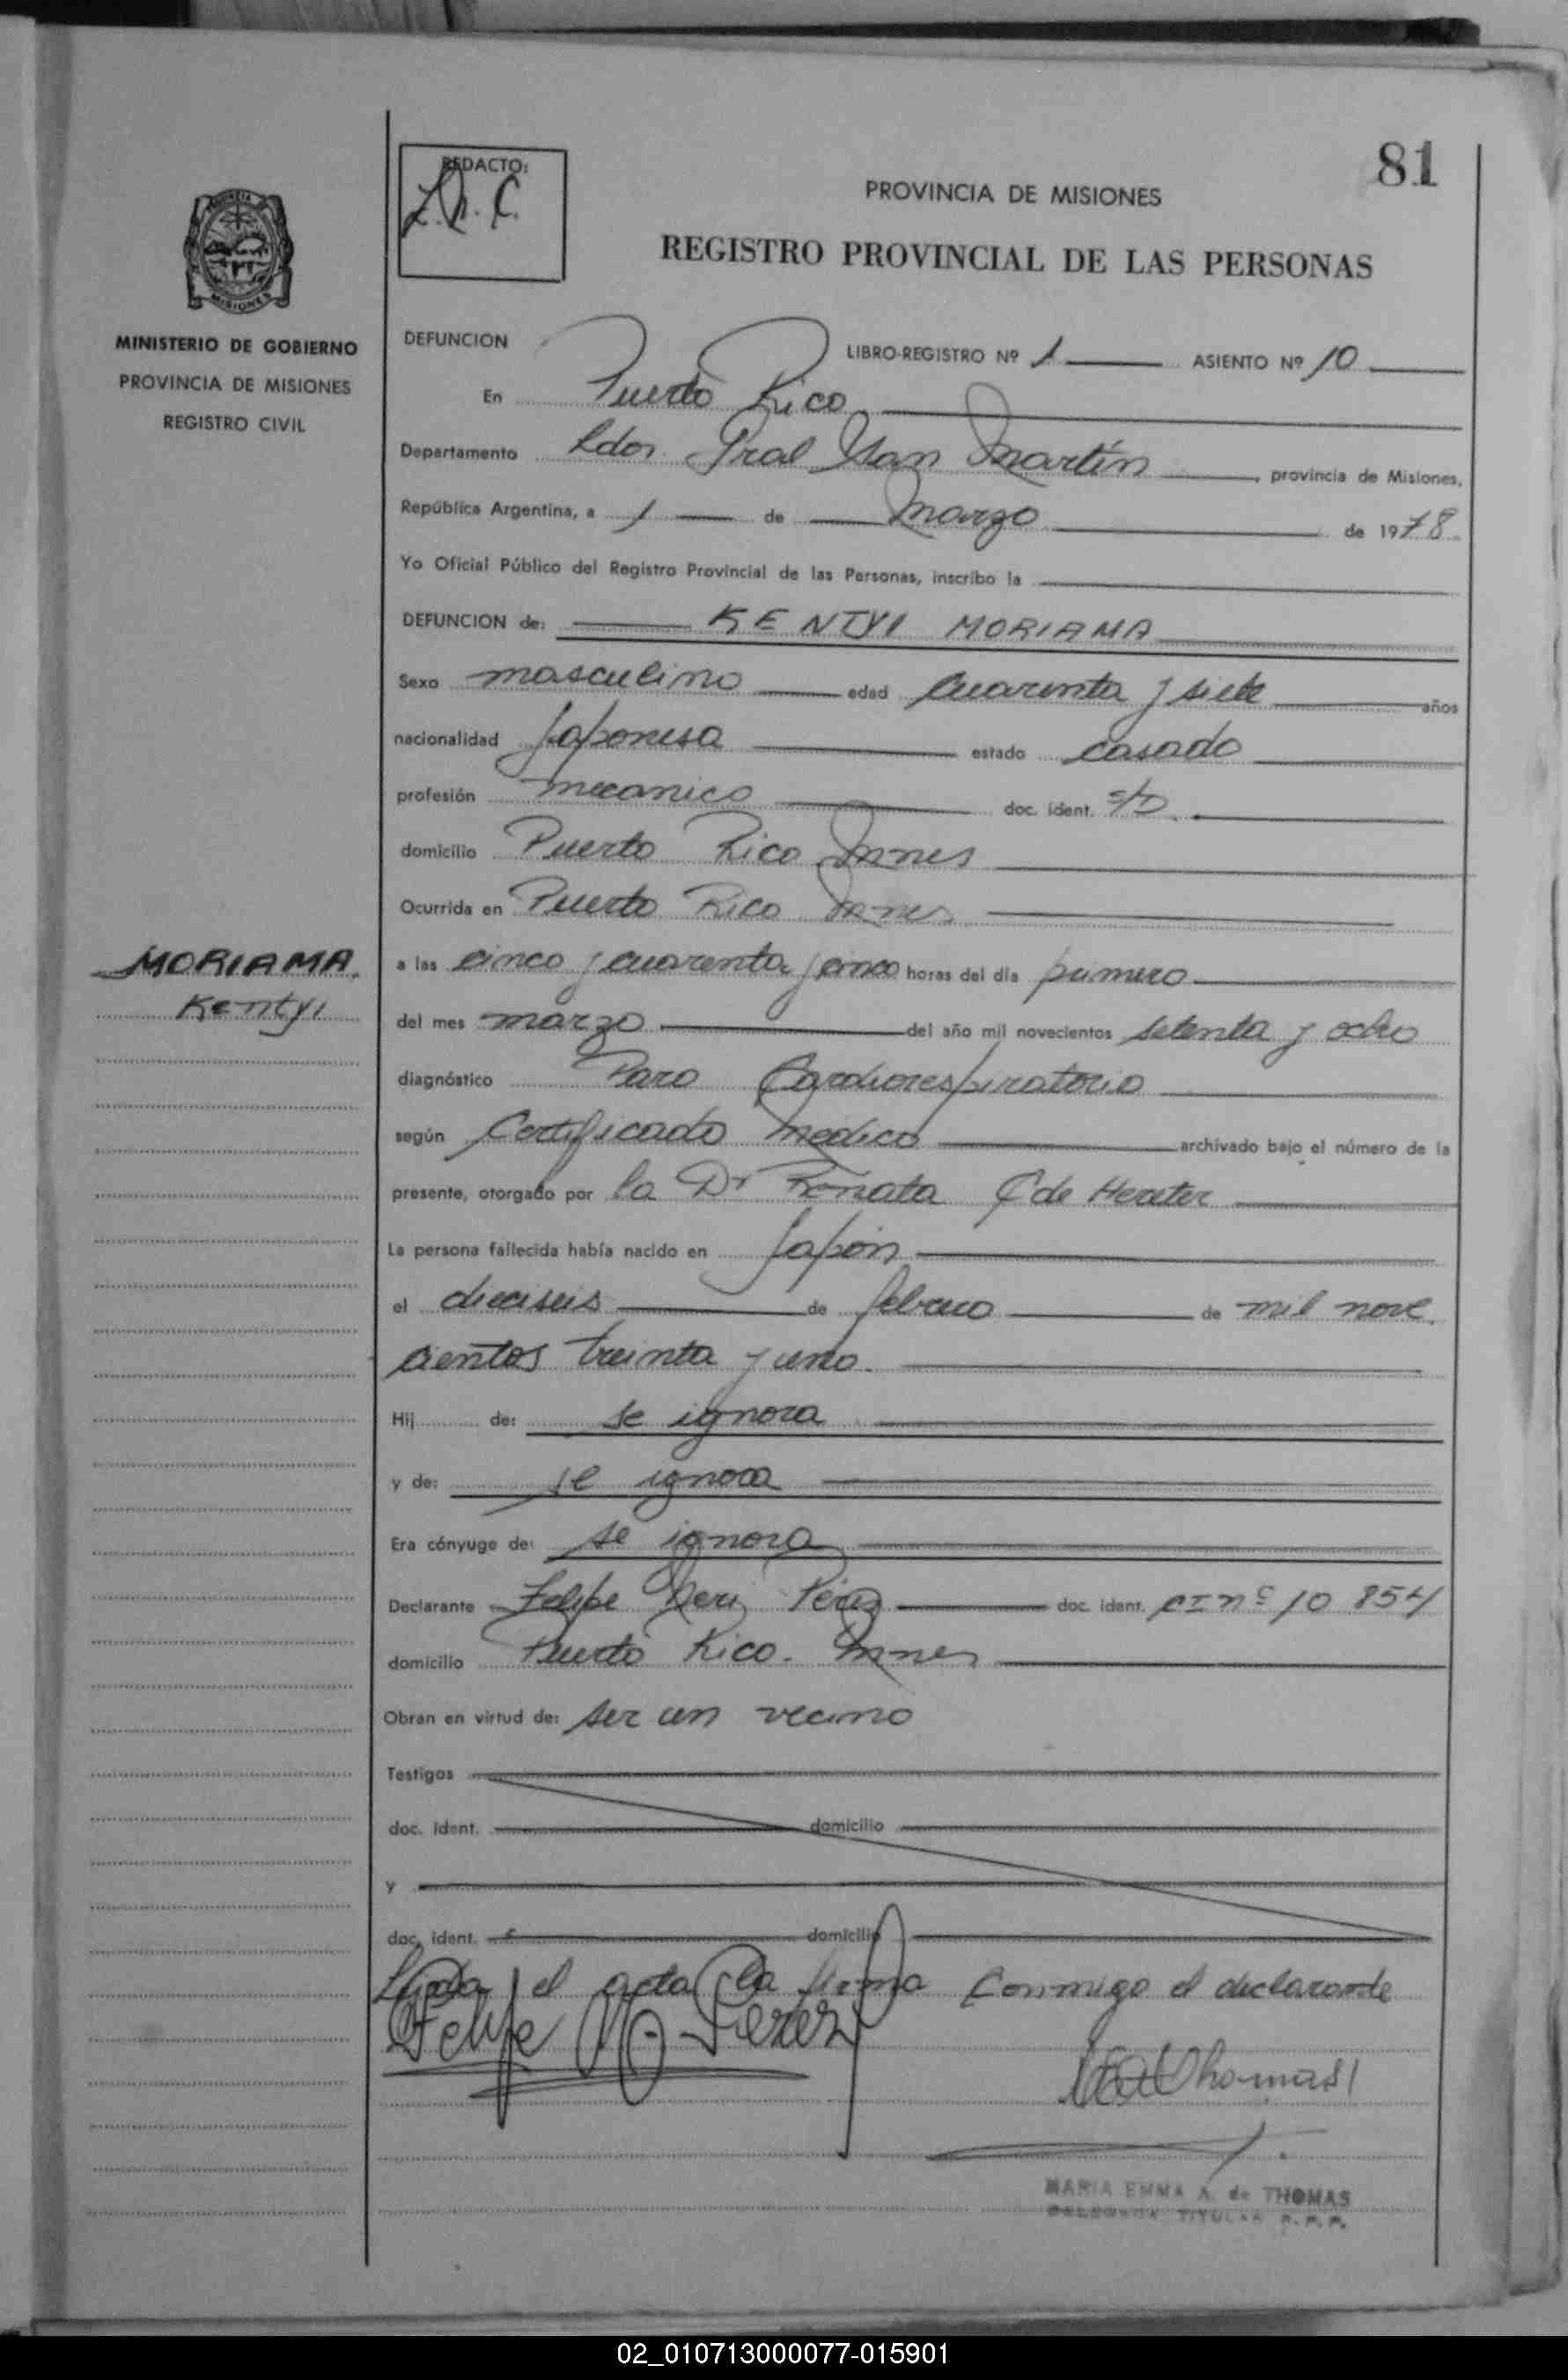 81
REDACTO:
PROVINCIA DE MISIONES
REGISTRO PROVINCIAL DE LAS PERSONAS
MISIONES
MINISTERIO DE GOBIERNO
PROVINCIA DE MISIONES
REGISTRO CIVIL
MORIAMA
Kentyi
DEFUNCION LIBRO-REGISTRO Nº 1 ASIENTO Nº 10
En Puerto Rico
Departamento Ldor. Gral San Martín, provincia de Misiones,
República Argentina, a 1 de Marzo de 1978
Yo Oficial Público del Registro Provincial de las Personas, inscribo la
DEFUNCION de: KENTYI MORIAMA
Sexo masculino edad Cuarenta y siete años
nacionalidad Japonesa estado casado
profesión mecanico doc. ident. s/D
domicilio Puerto Rico Mnes
Ocurrida en Puerto Rico Mnes
a las cinco y cuarenta y cinco horas del día primero
del mes marzo del año mil novecientos setenta y ocho
diagnóstico Paro Cardiorespiratorio
según Certificado Medico archivado bajo el número de la
presente, otorgado por la Dr Renata C de
La persona fallecida había nacido en Japón
el dieciseis de febrero de mil nove
cientos treinta y uno.
Hij de: se ignora
y de: se ignora
Era cónyuge de: se ignora
Declarante Felipe Perez doc. ident. CI nº 10 854
domicilio Puerto Rico. Mnes
Obran en virtud de: ser un vecino
Testigos
doc. ident. domicilio
y
doc. ident. domicilio
Leida el acta la firma Conmigo el declarante
Felipe Perez
Thomas
MARIA EMMA A. de THOMAS
DELEGADA TITULAR R.P.P.
02_010713000077-015901